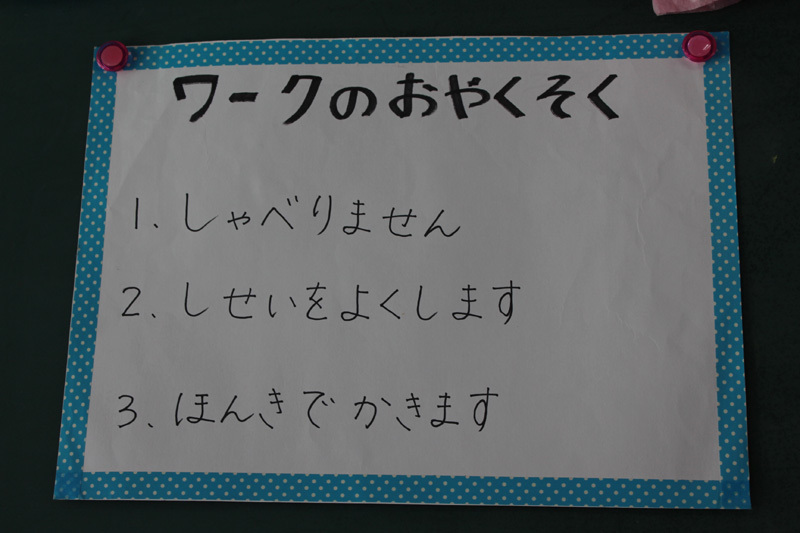 ワークのおやくそく
1、しゃべりません
2、しせいをよくします
3、ほんきでかきます